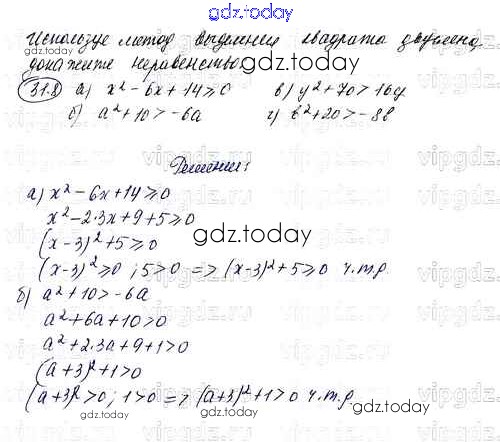 gdz.today
Используе метод выделения квадрата двучлена,
докажите неравенство
31.8 а) x² - 6x + 14 ≥ 0 в) y² + 70 > 16y
б) a² + 10 > -6a г) b² + 20 > -8b
Решение:
а) x² - 6x + 14 ≥ 0
x² - 2·3x + 9 + 5 ≥ 0
(x-3)² + 5 ≥ 0
(x-3)² ≥ 0 ; 5 > 0 => (x-3)² + 5 ≥ 0 ч.т.р.
б) a² + 10 > -6a
a² + 6a + 10 > 0
a² + 2·3a + 9 + 1 > 0
(a+3)² + 1 > 0
(a+3)² > 0 ; 1 > 0 => (a+3)² + 1 > 0 ч.т.р
gdz.today
gdz.today
gdz.today
gdz.today